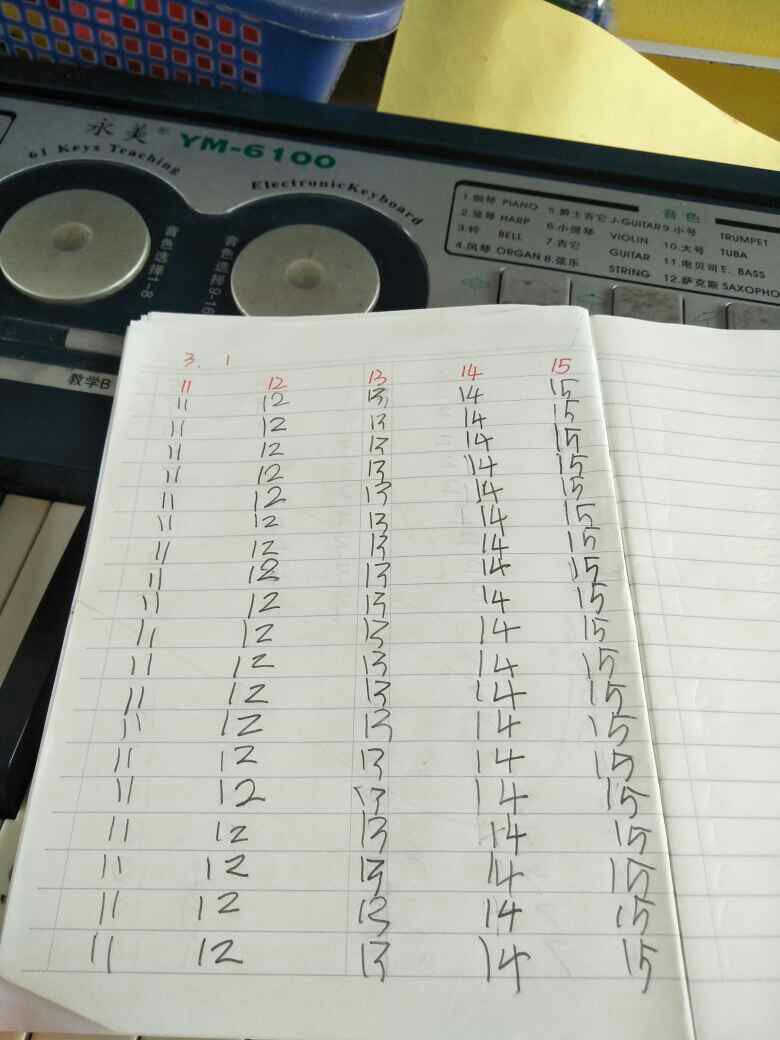 永美 YM-6100
61 Keys Teaching
ElectronicKeyboard
音色选择1-8
音色选择9-16
音色
1.钢琴 PIANO 5.爵士吉它 J-GUITAR 9.小号 TRUMPET
2.竖琴 HARP 6.小提琴 VIOLIN 10.大号 TUBA
3.铃 BELL 7.吉它 GUITAR 11.电贝司 E. BASS
4.风琴 ORGAN 8.弦乐 STRING 12.萨克斯 SAXOPHO
教学B
3. 1
11 12 13 14 15
11 12 13 14 15
11 12 13 14 15
11 12 13 14 15
11 12 13 14 15
11 12 13 14 15
11 12 13 14 15
11 12 13 14 15
11 12 13 14 15
11 12 13 14 15
11 12 13 14 15
11 12 13 14 15
11 12 13 14 15
11 12 13 14 15
11 12 13 14 15
11 12 13 14 15
11 12 13 14 15
11 12 13 14 15
11 12 13 14 15
11 12 13 14 15